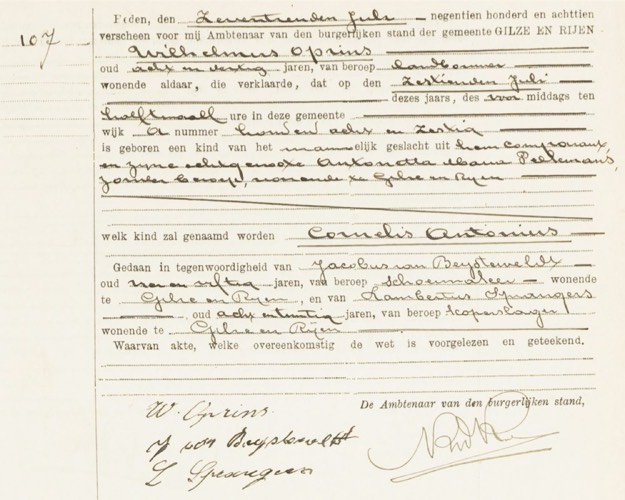 107
Heden, den Zeventienden Juli negentien honderd en achttien
verscheen voor mij Ambtenaar van den burgerlijken stand der gemeente GILZE EN RIJEN
Wilhelmus Oprins
oud acht en dertig jaren, van beroep landbouwer
wonende aldaar, die verklaarde, dat op den Zestienden Juli
dezes jaars, des voor middags ten
half twaalf ure in deze gemeente
wijk A nummer honderd acht en zestig
is geboren een kind van het mannelijk geslacht uit hem comparant,
en zijne echtgenoote Antonetta Maria Peeremans,
zonder beroep, wonende te Gilze en Rijen
welk kind zal genaamd worden Cornelis Antonius
Gedaan in tegenwoordigheid van Jacobus van Beijsterveldt
oud en vijftig jaren, van beroep schoenmaker wonende
te Gilze en Rijen, en van Lambertus Sprangers
oud acht en twintig jaren, van beroep koperslager
wonende te Gilze en Rijen
Waarvan akte, welke overeenkomstig de wet is voorgelezen en geteekend.
De Ambtenaar van den burgerlijken stand,
W. Oprins
J van Beijsterveldt
L Sprangers